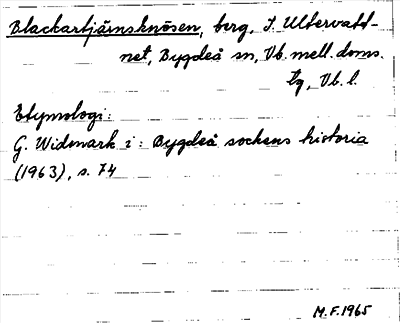 Blackartjärnsknösen, berg, S. Ultervatt-
net, Bygdeå sn, Vb. mell. doms.
tg, Vb. l.
Etymologi:
G. Widmark i: Bygdeå sockens historia
(1963), s. 74
M.F. 1965